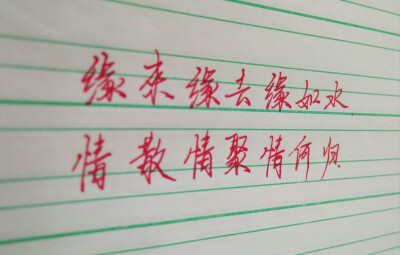 缘来缘去缘如水
情散情聚情何归